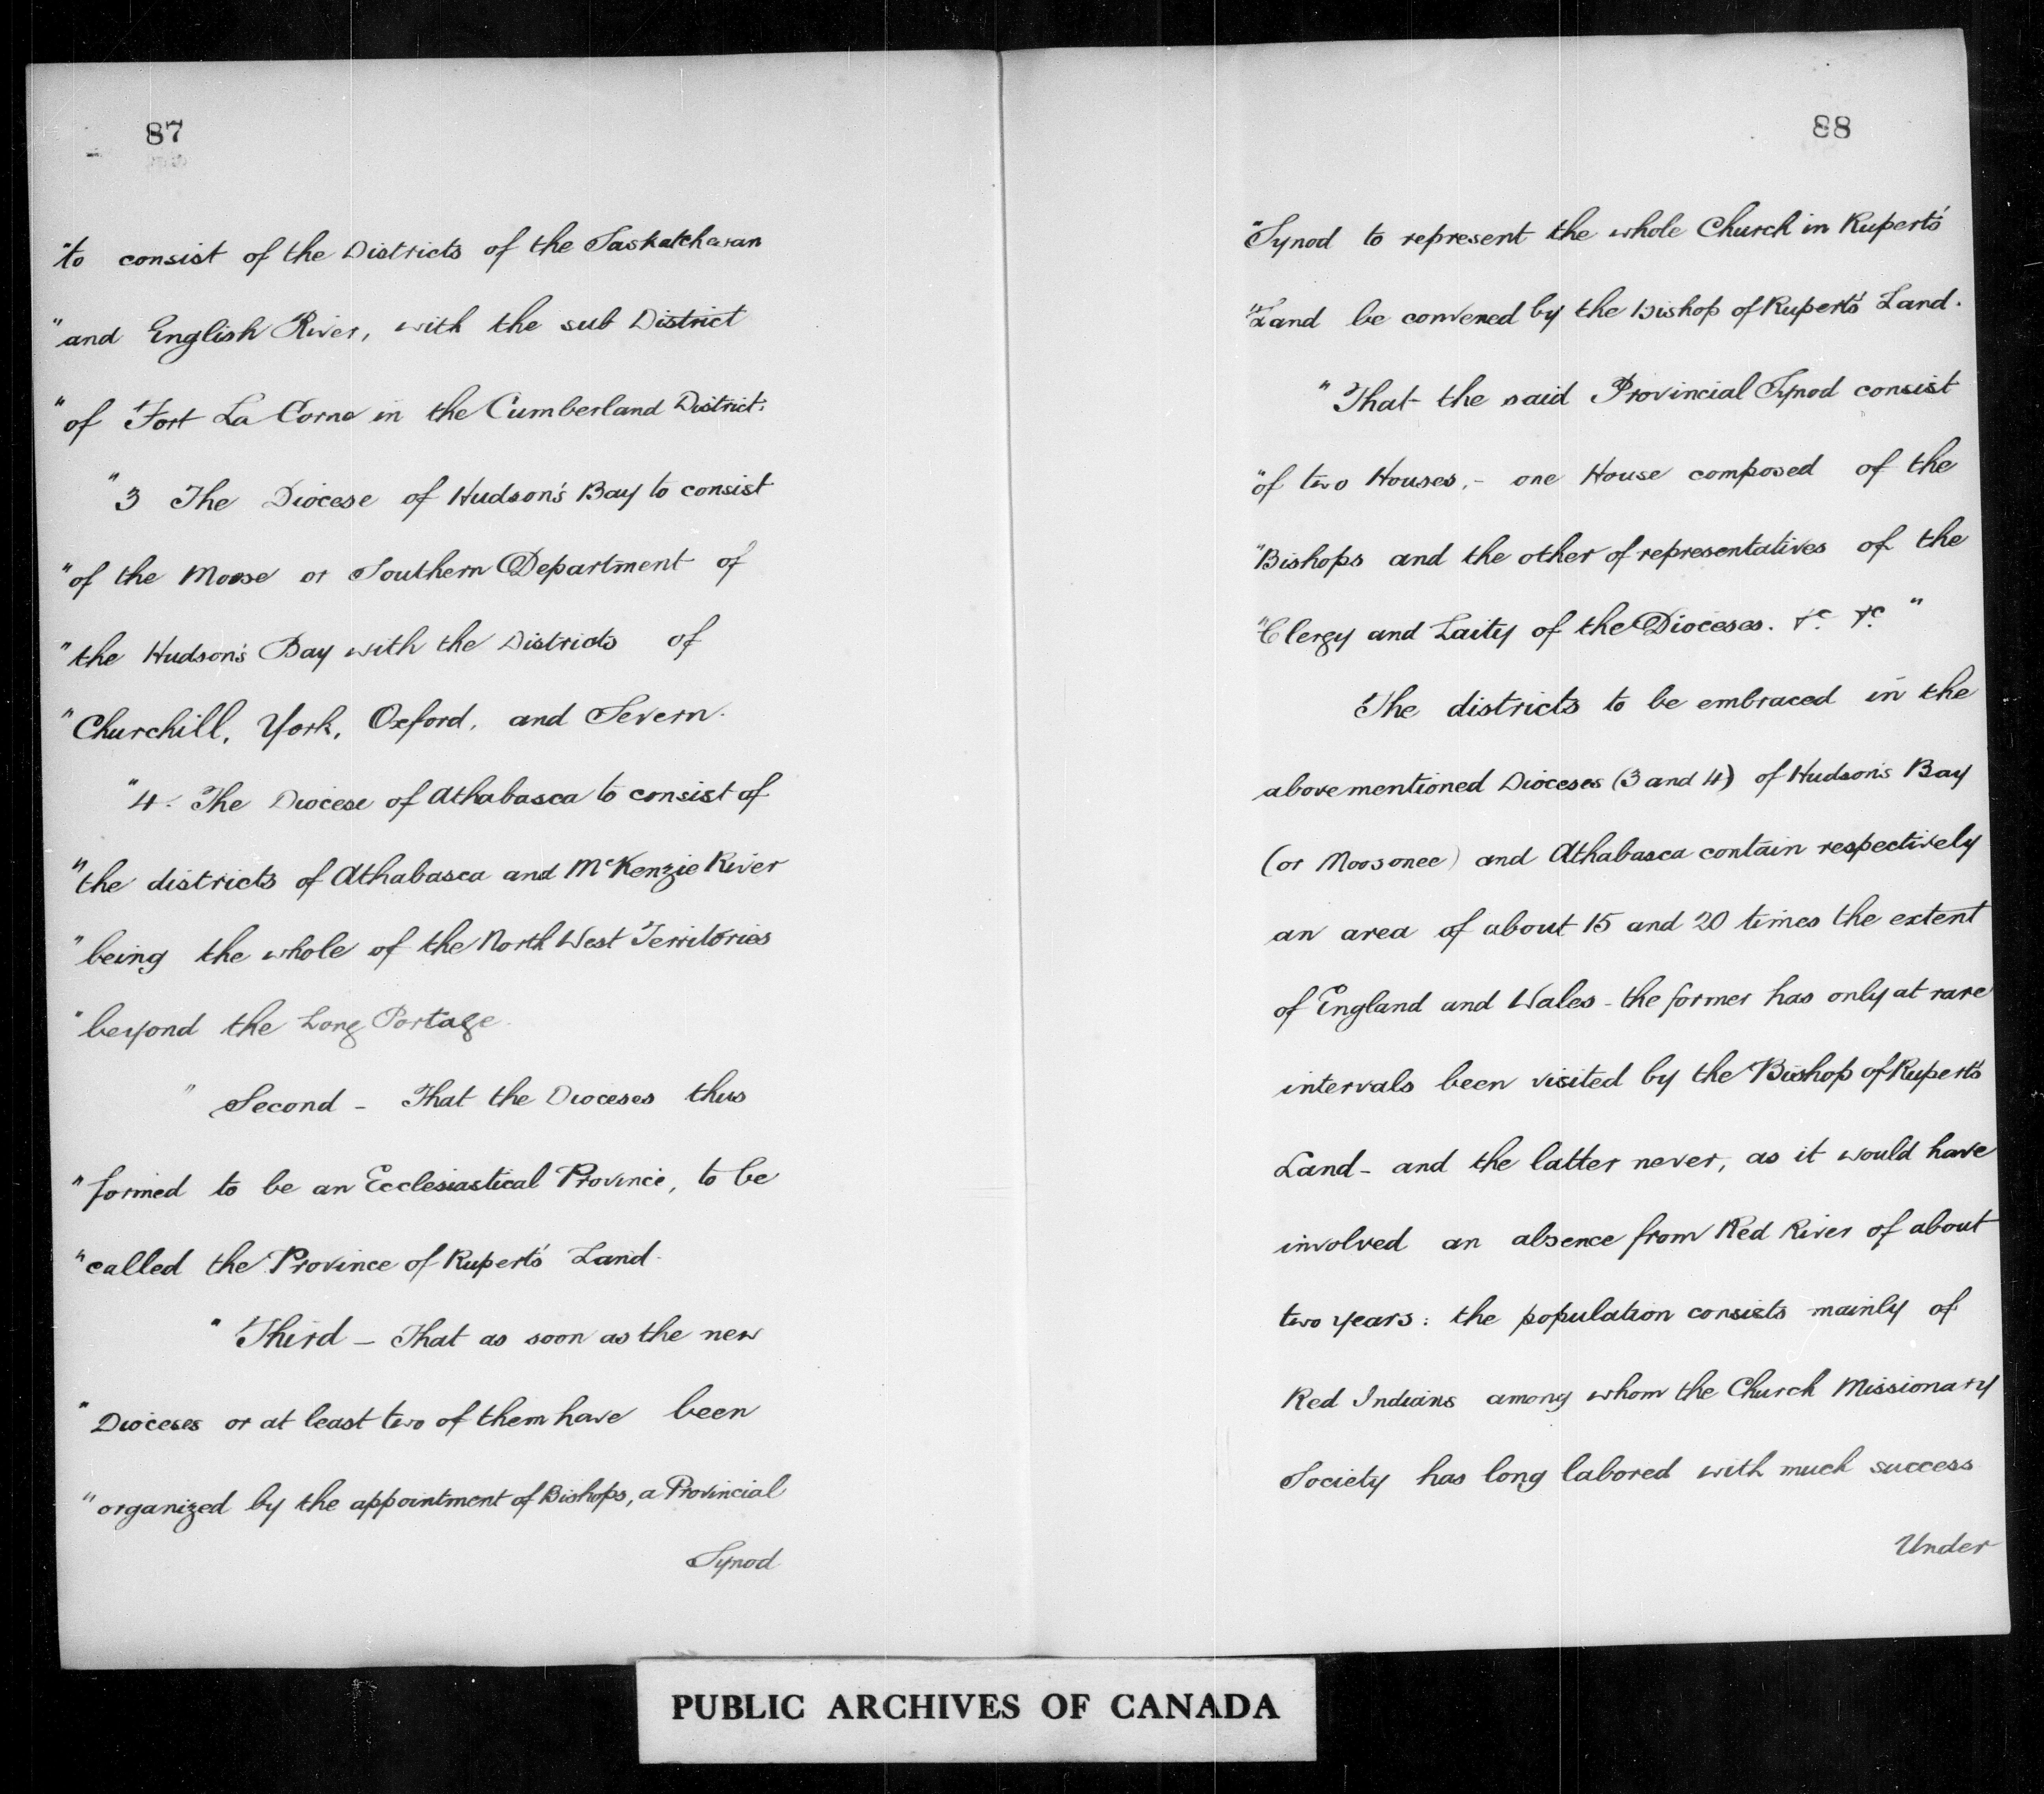 87
"to consist of the Districts of the Saskatchewan
"and English River, with the sub District
"of Fort La Corne in the Cumberland District.
"3 The Diocese of Hudson's Bay to consist
"of the Moose or Southern Department of
"the Hudson's Bay with the Districts of
"Churchill, York, Oxford, and Severn.
"4. The Diocese of Athabasca to consist of
"the districts of Athabasca and McKenzie River
"being the whole of the North West Territories
"beyond the Long Portage.
"Second - That the Dioceses thus
"formed to be an Ecclesiastical Province, to be
"called the Province of Rupert's Land.
"Third - That as soon as the new
"Dioceses or at least two of them have been
"organized by the appointment of Bishops, a Provincial
Synod
88
"Synod to represent the whole Church in Rupert's
"Land be convened by the Bishop of Rupert's Land.
"That the said Provincial Synod consist
"of two Houses, - one House composed of the
"Bishops and the other of representatives of the
"Clergy and Laity of the Dioceses. &c. &c."
The districts to be embraced in the
abovementioned Dioceses (3 and 4) of Hudson's Bay
(or Moosonee) and Athabasca contain respectively
an area of about 15 and 20 times the extent
of England and Wales - the former has only at rare
intervals been visited by the Bishop of Rupert's
Land - and the latter never, as it would have
involved an absence from Red River of about
two years: the population consists mainly of
Red Indians among whom the Church Missionary
Society has long labored with much success
Under
PUBLIC ARCHIVES OF CANADA